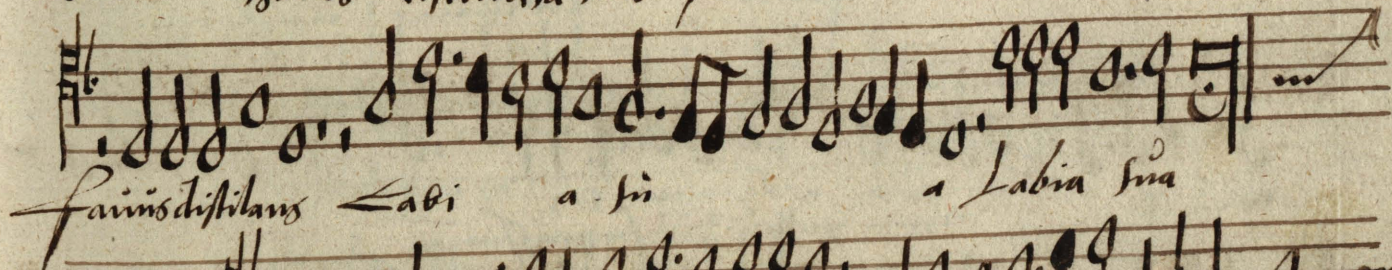 favus distilans Labi a su a Labia sua